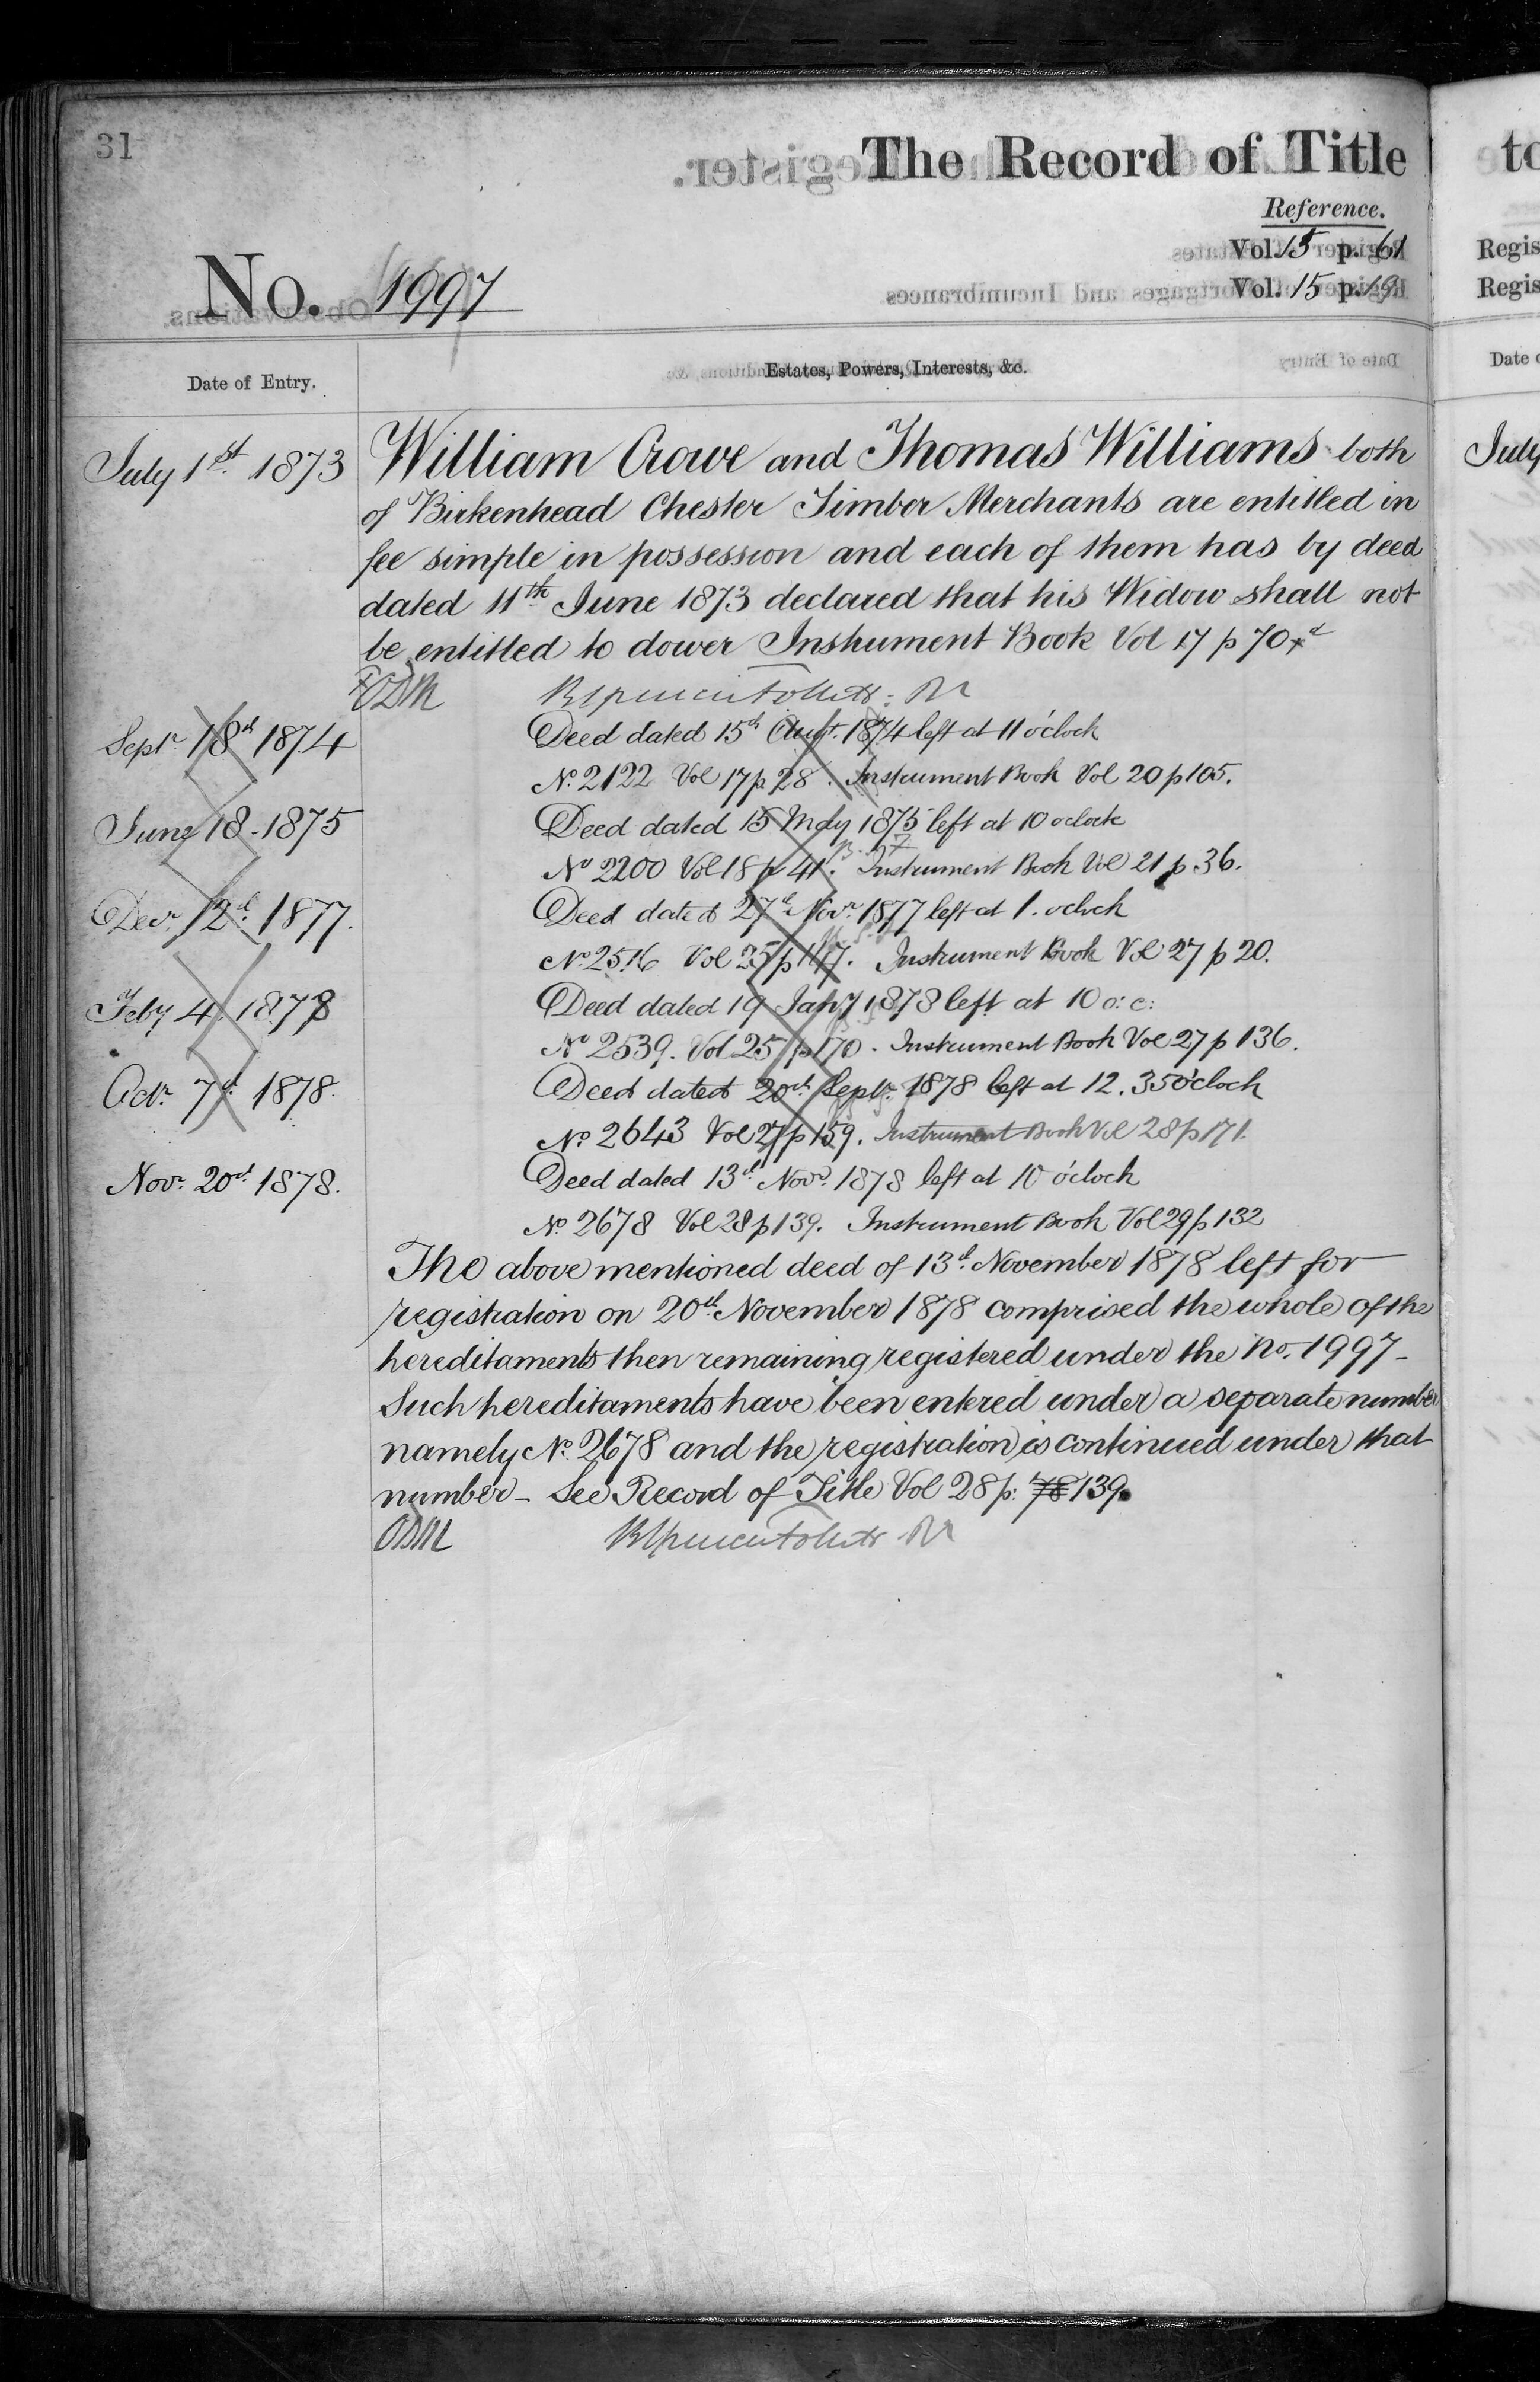 31
The Record of Title
Reference.
Vol. 15 p. 61
Vol. 15 p. 19
No. 1997
Date of Entry.
Estates, Powers, Interests, &c.
July 1st 1873
William Crowe and Thomas Williams both
of Birkenhead Chester Timber Merchants are entitled in
fee simple in possession and each of them has by deed
dated 11th June 1873 declared that his Widow shall not
be entitled to dower Instrument Book Vol 17 p 70
Septr. 18th 1874
Deed dated 15th Augt. 1874 left at 11 o'clock
No. 2122 Vol 17 p 28. Instrument Book Vol 20 p 105.
June 18 - 1875
Deed dated 15 May 1875 left at 10 o'clock
No 2200 Vol 18 p 41. Instrument Book Vol 21 p 36.
Decr. 12th 1877.
Deed dated 27th Novr. 1877 left at 1. o'clock
No. 2516 Vol 25 p 117. Instrument Book Vol 27 p 20.
Feby 4. 1878
Deed dated 19 Jany 1878 left at 10 o: c:
No 2539. Vol 25 p 170. Instrument Book Vol 27 p 136.
Octr. 7th 1878.
Deed dated 20th Septr. 1878 left at 12.35 o'clock
No. 2643 Vol 27 p 159. Instrument Book Vol 28 p 171.
Novr. 20th 1878.
Deed dated 13th Novr. 1878 left at 10 o'clock
No. 2678 Vol 28 p 139. Instrument Book Vol 29 p 132
The above mentioned deed of 13th November 1878 left for
registration on 20th November 1878 comprised the whole of the
hereditaments then remaining registered under the No. 1997 -
Such hereditaments have been entered under a separate number
namely No. 2678 and the registration is continued under that
number - See Record of Title Vol 28 p: 78 139.
to
Regis
Regis
Date o
July